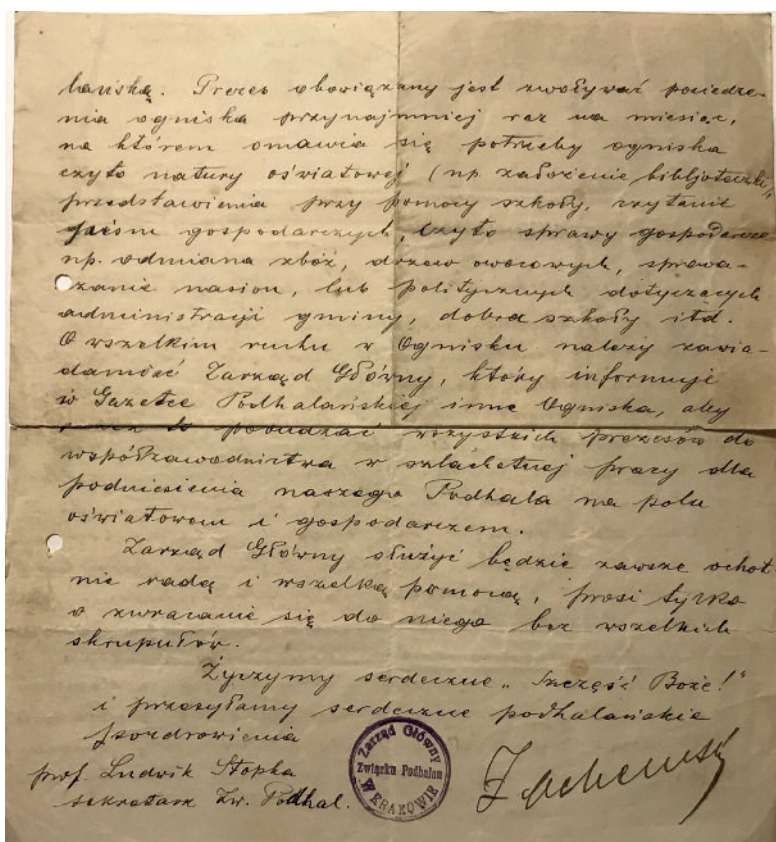 lańską. Prezes obowiązany jest zwoływać posiedze-
nia ogniska przynajmniej raz na miesiąc,
na którem omawia się potrzeby ogniska
czyto natury oświatowej (np. założenie bibljoteczki,
przedstawienia przy pomocy szkoły, czytanie
pism gospodarczych, czyto sprawy gospodarcze
np. odmiana zbóż, drzew owocowych, sprowa-
dzanie nasion, lub politycznych dotyczących
administracji gminy, dobra szkoły itd.
O wszelkim ruchu w Ognisku należy zawia-
damiać Zarząd Główny, który informuje
w Gazetce Podhalańskiej inne Ogniska, aby
przez to pobudzać wszystkich prezesów do
współzawodnictwa w szlachetnej pracy dla
podniesienia naszego Podhala na polu
oświatowem i gospodarczem.
Zarząd Główny służyć będzie zawsze ochot
nie radą i wszelką pomocą, prosi tylko
o zwracanie się do niego bez wszelkich
skrupułów.
Życzymy serdeczne „Szczęść Boże!"
i przesyłamy serdeczne podhalańskie
pozdrowienia
prof. Ludwik Stopka
sekretarz Zw. Podhal.
Zarząd Główny
Związku Podhalan
W KRAKOWIE